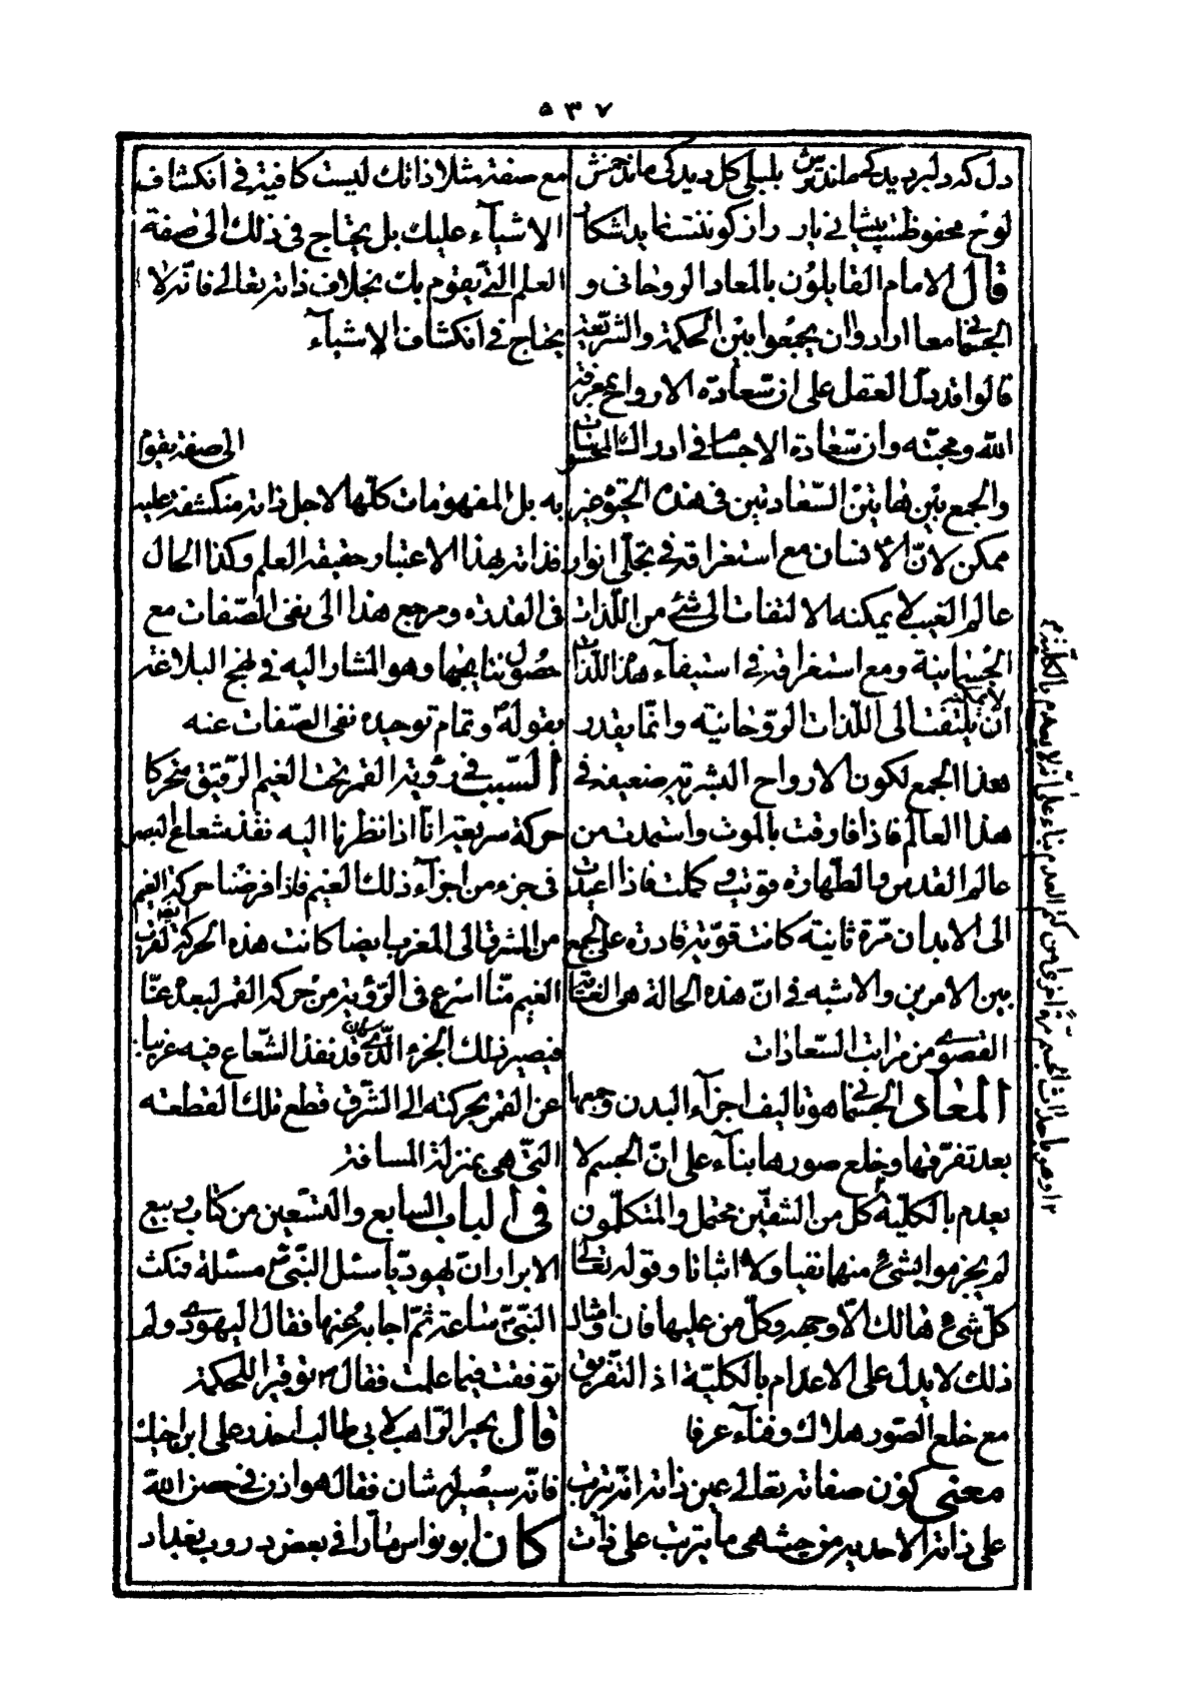 ٥٣٧
دل که دلبر دید کی ماند ترش بلبلی گل دید کی ماند خمش
لوح محفوظست پیشانی یار راز کونینت نماید اشکار
قال الامام القايلون بالمعاد الروحانى و
الجسمانى معا ارادوا ان يجمعوا بين الحكمة والشريعة
قالوا قد دل العقل على ان سعادة الارواح بمعرفة
الله ومحبته وان سعادة الاجسام فى ادراك المحسوسات
والجمع بين هاتين السعادتين فى هذه الحيوة غير
ممكن لانّ الانسان مع استغراقه فى تجلى انوار
عالم الغيب لا يمكنه الالتفات الى شئ من اللذات
الجسمانية ومع استغراقه فى استيفاء هذه اللذات لا يمكنه
ان يلتفت الى اللذات الروحانية وانما يقدر
هذا الجمع لكون الارواح البشرية ضعيفة فى
هذا العالم فاذا فارقت بالموت واستمدت من
عالم القدس والطهارة قويت و كملت فاذا اعيدت
الى الابدان مرة ثانية كانت قوية قادرة على الجمع
بين الامرين والاشبه فى انّ هذه الحالة هى الغاية
القصوى من مراتب السعادات
المعاد الجسمانى هو تاليف اجزاء البدن وجمعها
بعد تفرقها وخلع صورها بناء على انّ الجسم لا
يعدم بالكلية و كل من الشقين محتمل والمتكلمون
لم يجزموا بشئ منهما نفيا ولا اثباتا وقوله تعالى
كل شئ هالك الا وجهه وكل من عليها فان وامثال
ذلك لا يدل على الاعدام بالكلية اذ التفريق
مع خلع الصور هلاك وفناء عرفا
معنى كون صفاته تعالى عين ذاته انه يترتب
على ذاته الاحدية من حيث هى ما يترتب على ذات
مع صفة مثلا ذاتك ليست كافية فى انكشاف
الاشياء عليك بل يحتاج فى ذلك الى صفة
العلم التى يقوم بك بخلاف ذاته تعالى فانه لا
يحتاج فى انكشاف الاشياء
الى صفة يقوم
به بل المفهومات كلها لاجل ذاته منكشفة عليه
فذاته بهذا الاعتبار حقيقة العلم وكذا الحال
فى القدرة ومرجع هذا الى نفى الصفات مع
حصول نتايجها وهو المشار اليه فى نهج البلاغة
بقوله ع وتمام توحيده نفى الصفات عنه
السبب فى رؤية القمر تحت الغيم الرقيق متحركا
حركة سريعة انا اذا نظرنا اليه نفذ شعاع البصر
فى جزء من اجزاء ذلك الغيم فاذا فرضنا حركة الغيم
من المشرق الى المغرب ايضا كانت هذه الحركة لقرب
الغيم منا اسرع فى الرؤية من حركة القمر لبعده عنا
فيصير ذلك الجزء الذى كان قد نفذ الشعاع فيه غربيا
عن القمر بحركته الى الشرق قطع تلك القطعة
التى هى بمنزلة المسافة
فى الباب السابع والتسعين من كتاب ربيع
الابرار ان يهوديا سئل النبى ص مسئلة فمكث
النبى ص ساعة ثم اجابه عنها فقال اليهودى ولم
توقفت فيما علمت فقال ص توقيرا للحكمة
قال بحيرا الراهب لابى طالب احذر على ابن اخيك
فانه سيصير له شان فقال هو اذن فى حصن الله
كان ابو نواس مارا فى بعض دروب بغداد